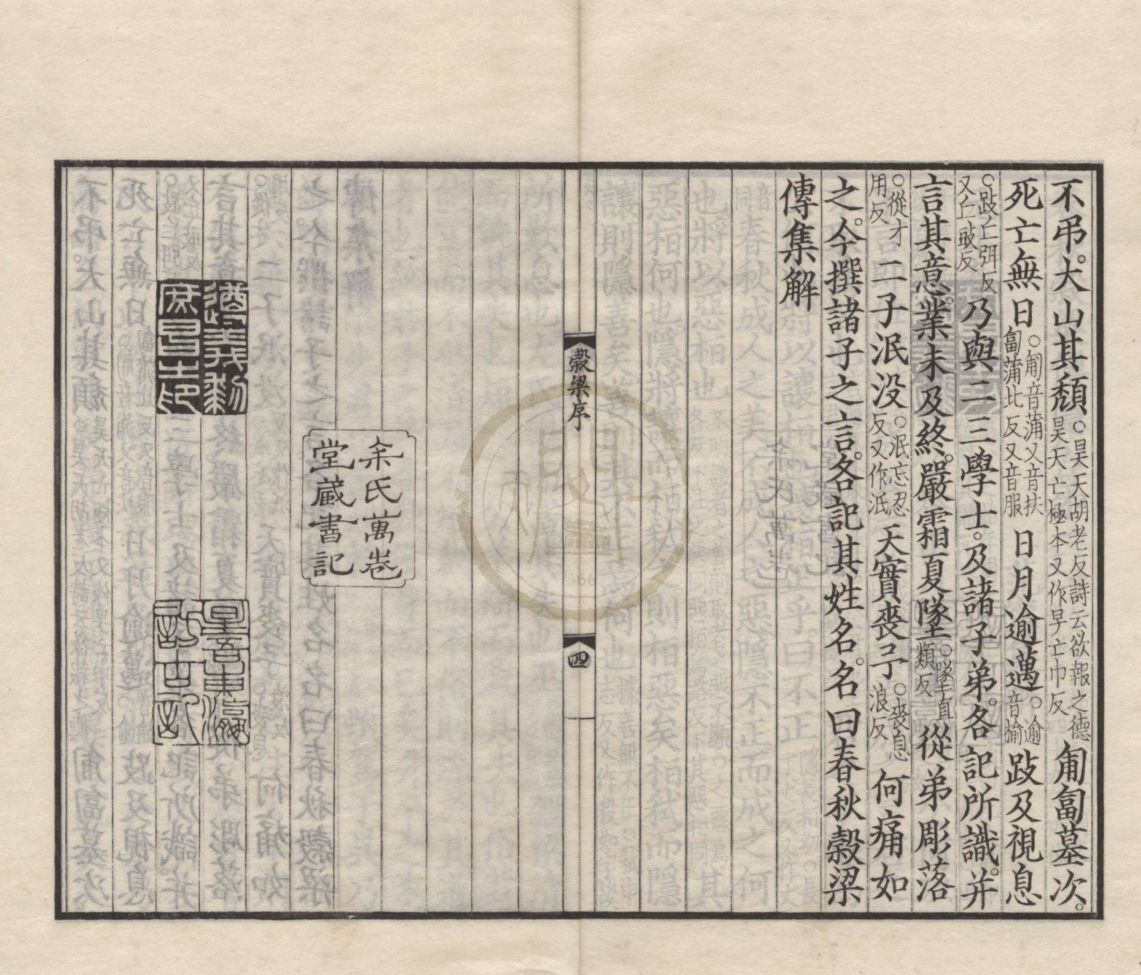 不弔。大山其頹。○昊天胡老反詩云欲報之德昊天亡極本又作旻亡巾反匍匐墓次。
死亡無日。○匍音蒲又音扶匐蒲北反又音服日月逾邁。○逾音揄跂及視息
○跂丘弭反又丘豉反乃與二三學士。及諸子弟。各記所識。并
言其意。業未及終。嚴霜夏墜。○墜直類反從弟彫落
○從才用反二子泯没。○泯忘忍反又作泜天實喪予。○喪息浪反何痛如
之。今撰諸子之言。各記其姓名。名曰春秋穀梁
傳集解
穀梁序
四
余氏萬卷
堂藏書記